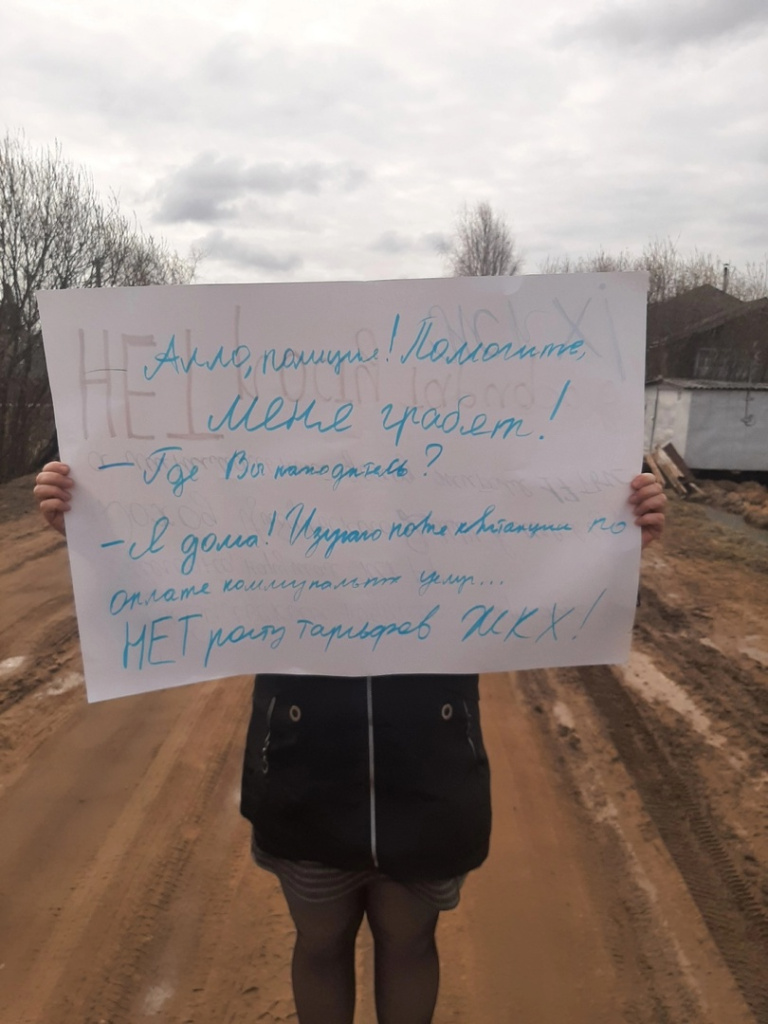 — Алло, полиция! Помогите,
меня грабят!
— Где Вы находитесь?
— Я дома! Изучаю новые квитанции по
оплате коммунальных услуг...
НЕТ росту тарифов ЖКХ!
НЕТ